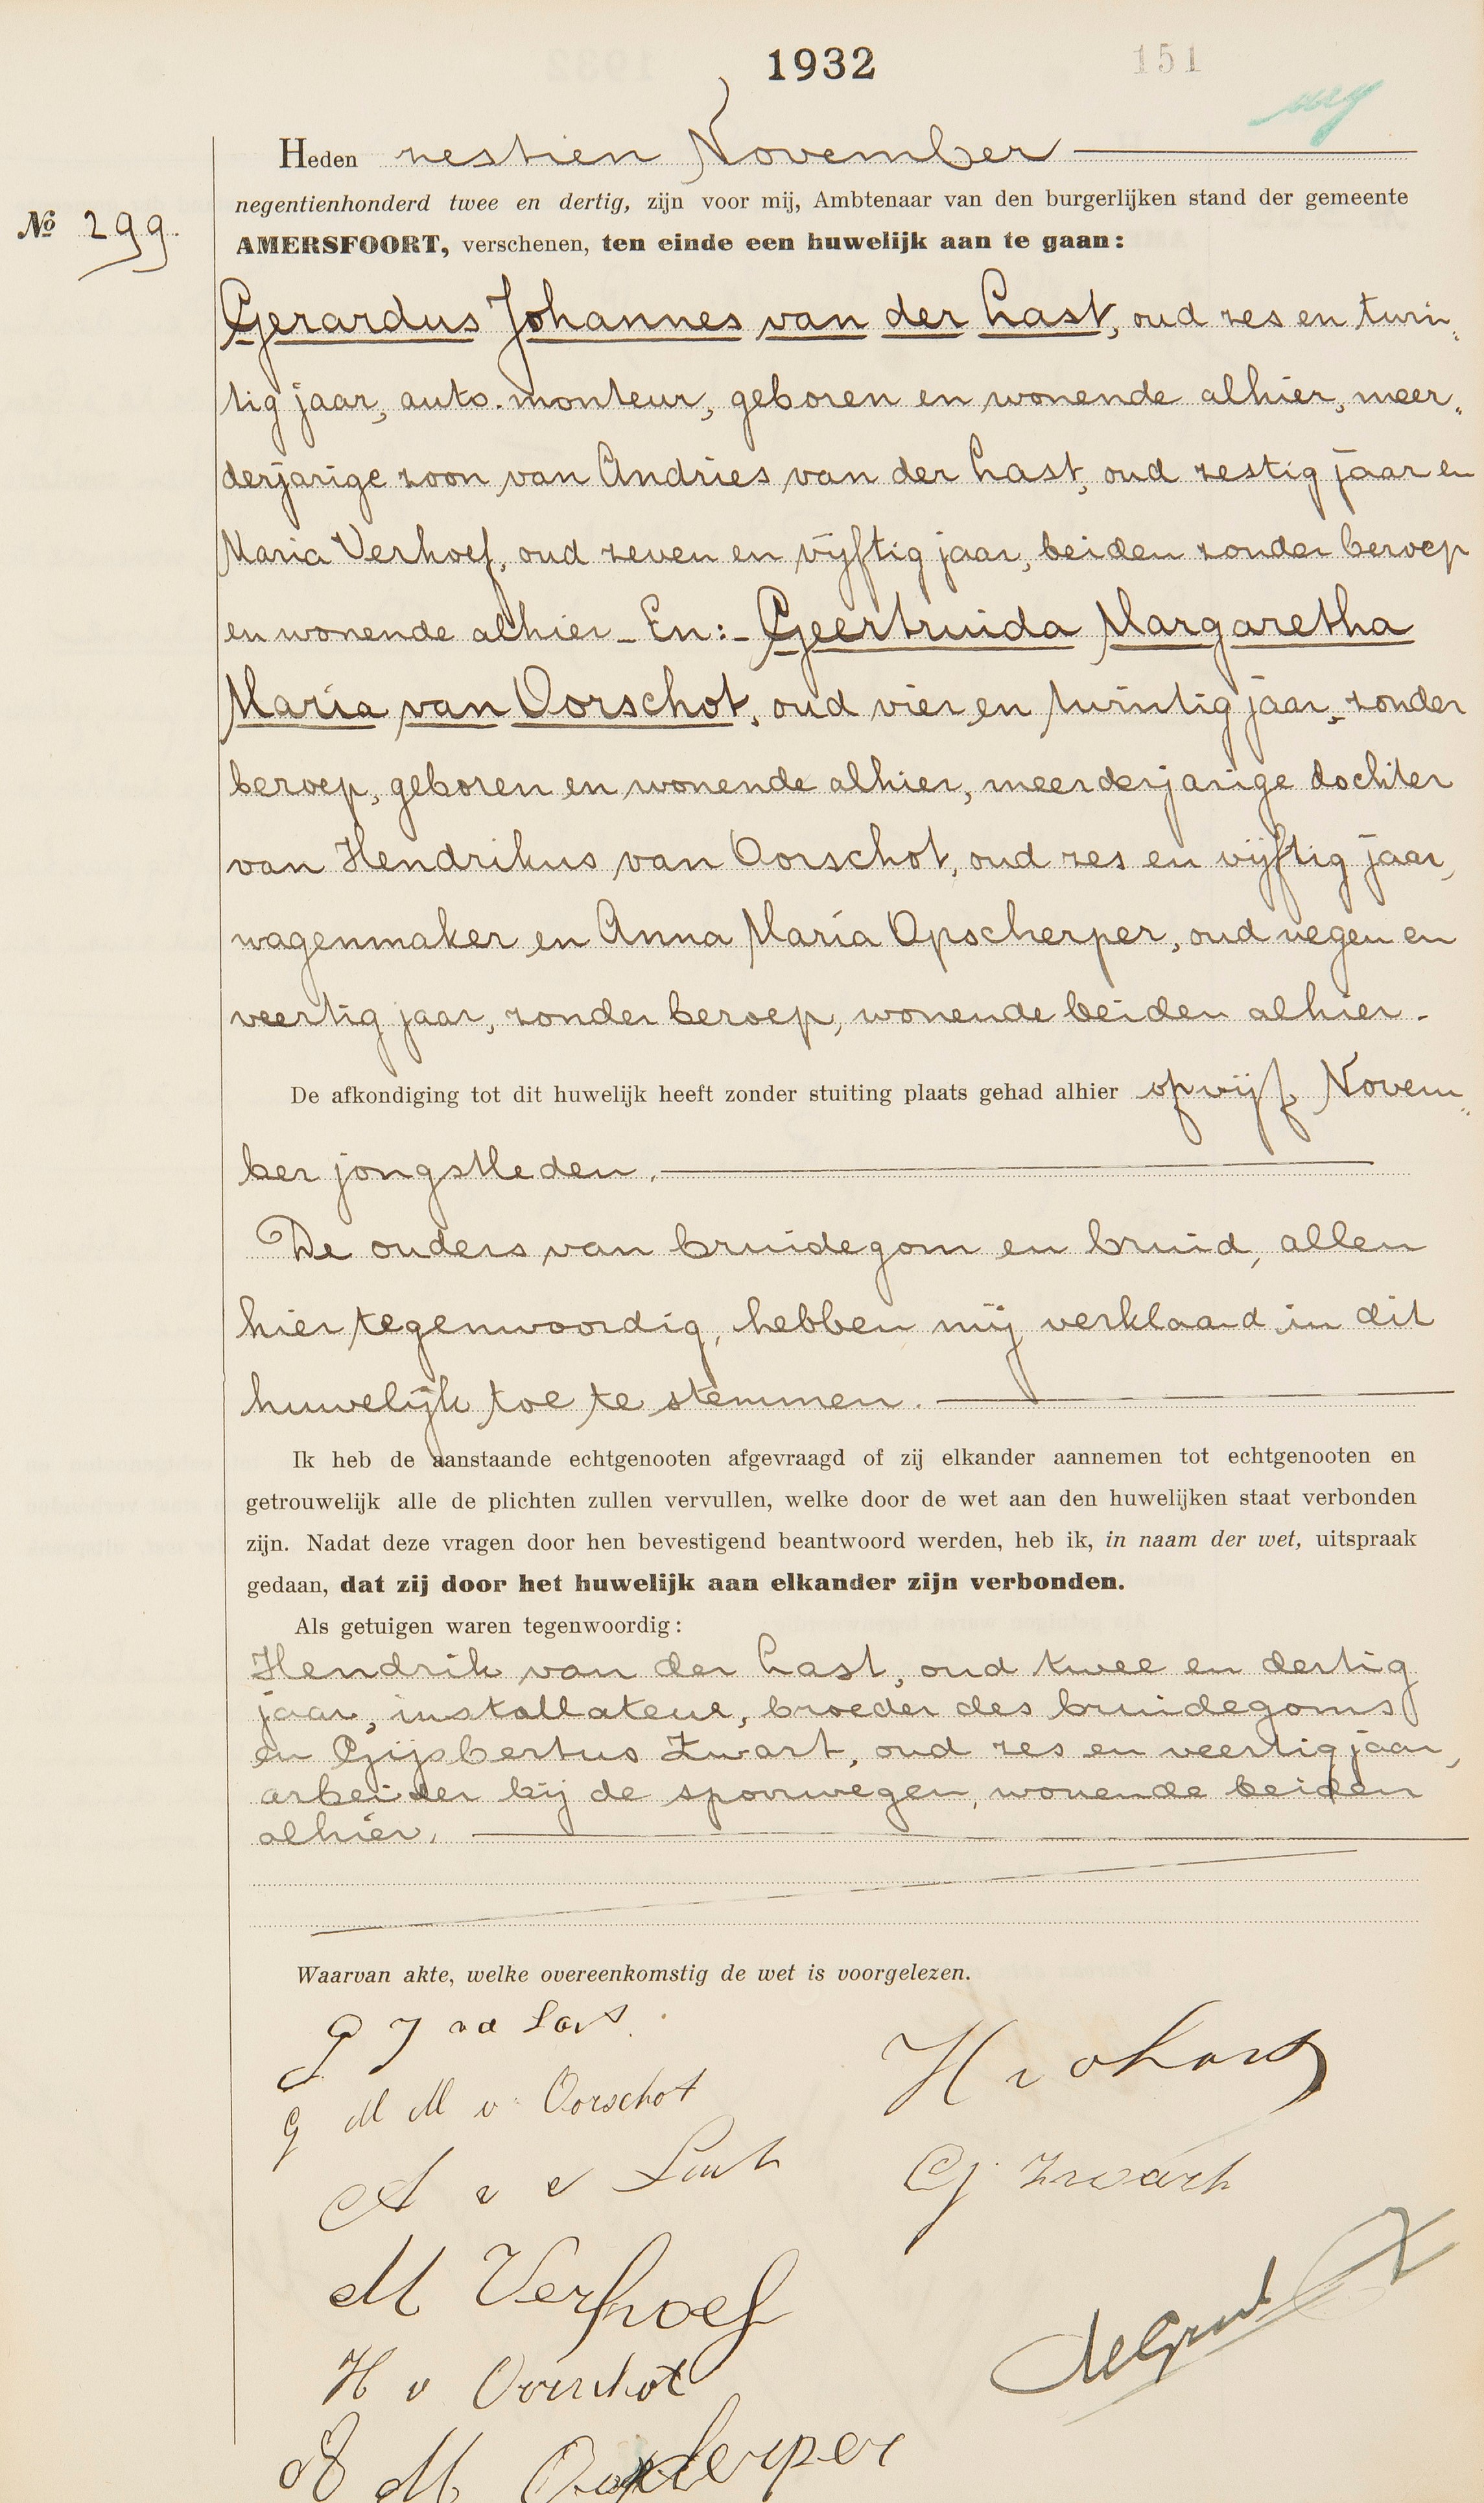 1932
151
Heden zestien November
negentienhonderd twee en dertig, zijn voor mij, Ambtenaar van den burgerlijken stand der gemeente
№ 299.
AMERSFOORT, verschenen, ten einde een huwelijk aan te gaan:
Gerardus Johannes van der Last, oud zes en twin„
tig jaar, auto-monteur, geboren en wonende alhier, meer„
derjarige zoon van Andries van der Last, oud zestig jaar en
Maria Verhoef, oud zeven en vijftig jaar, beiden zonder beroep
en wonende alhier – En: – Geertruida Margaretha
Maria van Oorschot, oud vier en twintig jaar, zonder
beroep, geboren en wonende alhier, meerderjarige dochter
van Hendrikus van Oorschot, oud zes en vijftig jaar,
wagenmaker en Anna Maria Opscherper, oud negen en
veertig jaar, zonder beroep, wonende beiden alhier.
De afkondiging tot dit huwelijk heeft zonder stuiting plaats gehad alhier op vijf Novem„
ber jongstleden.
De ouders van bruidegom en bruid, allen
hier tegenwoordig, hebben mij verklaard in dit
huwelijk toe te stemmen.
Ik heb de aanstaande echtgenooten afgevraagd of zij elkander aannemen tot echtgenooten en
getrouwelijk alle de plichten zullen vervullen, welke door de wet aan den huwelijken staat verbonden
zijn. Nadat deze vragen door hen bevestigend beantwoord werden, heb ik, in naam der wet, uitspraak
gedaan, dat zij door het huwelijk aan elkander zijn verbonden.
Als getuigen waren tegenwoordig:
Hendrik van der Last, oud twee en dertig
jaar, installateur, broeder des bruidegoms
en Gijsbertus Zwart, oud zes en veertig jaar,
arbeider bij de spoorwegen, wonende beiden
alhier.
Waarvan akte, welke overeenkomstig de wet is voorgelezen.
G J vd Last
H v d Last
G M M v Oorschot
A v d Last
G Zwart
M Verhoef
H v Oorschot
A M Opscherper